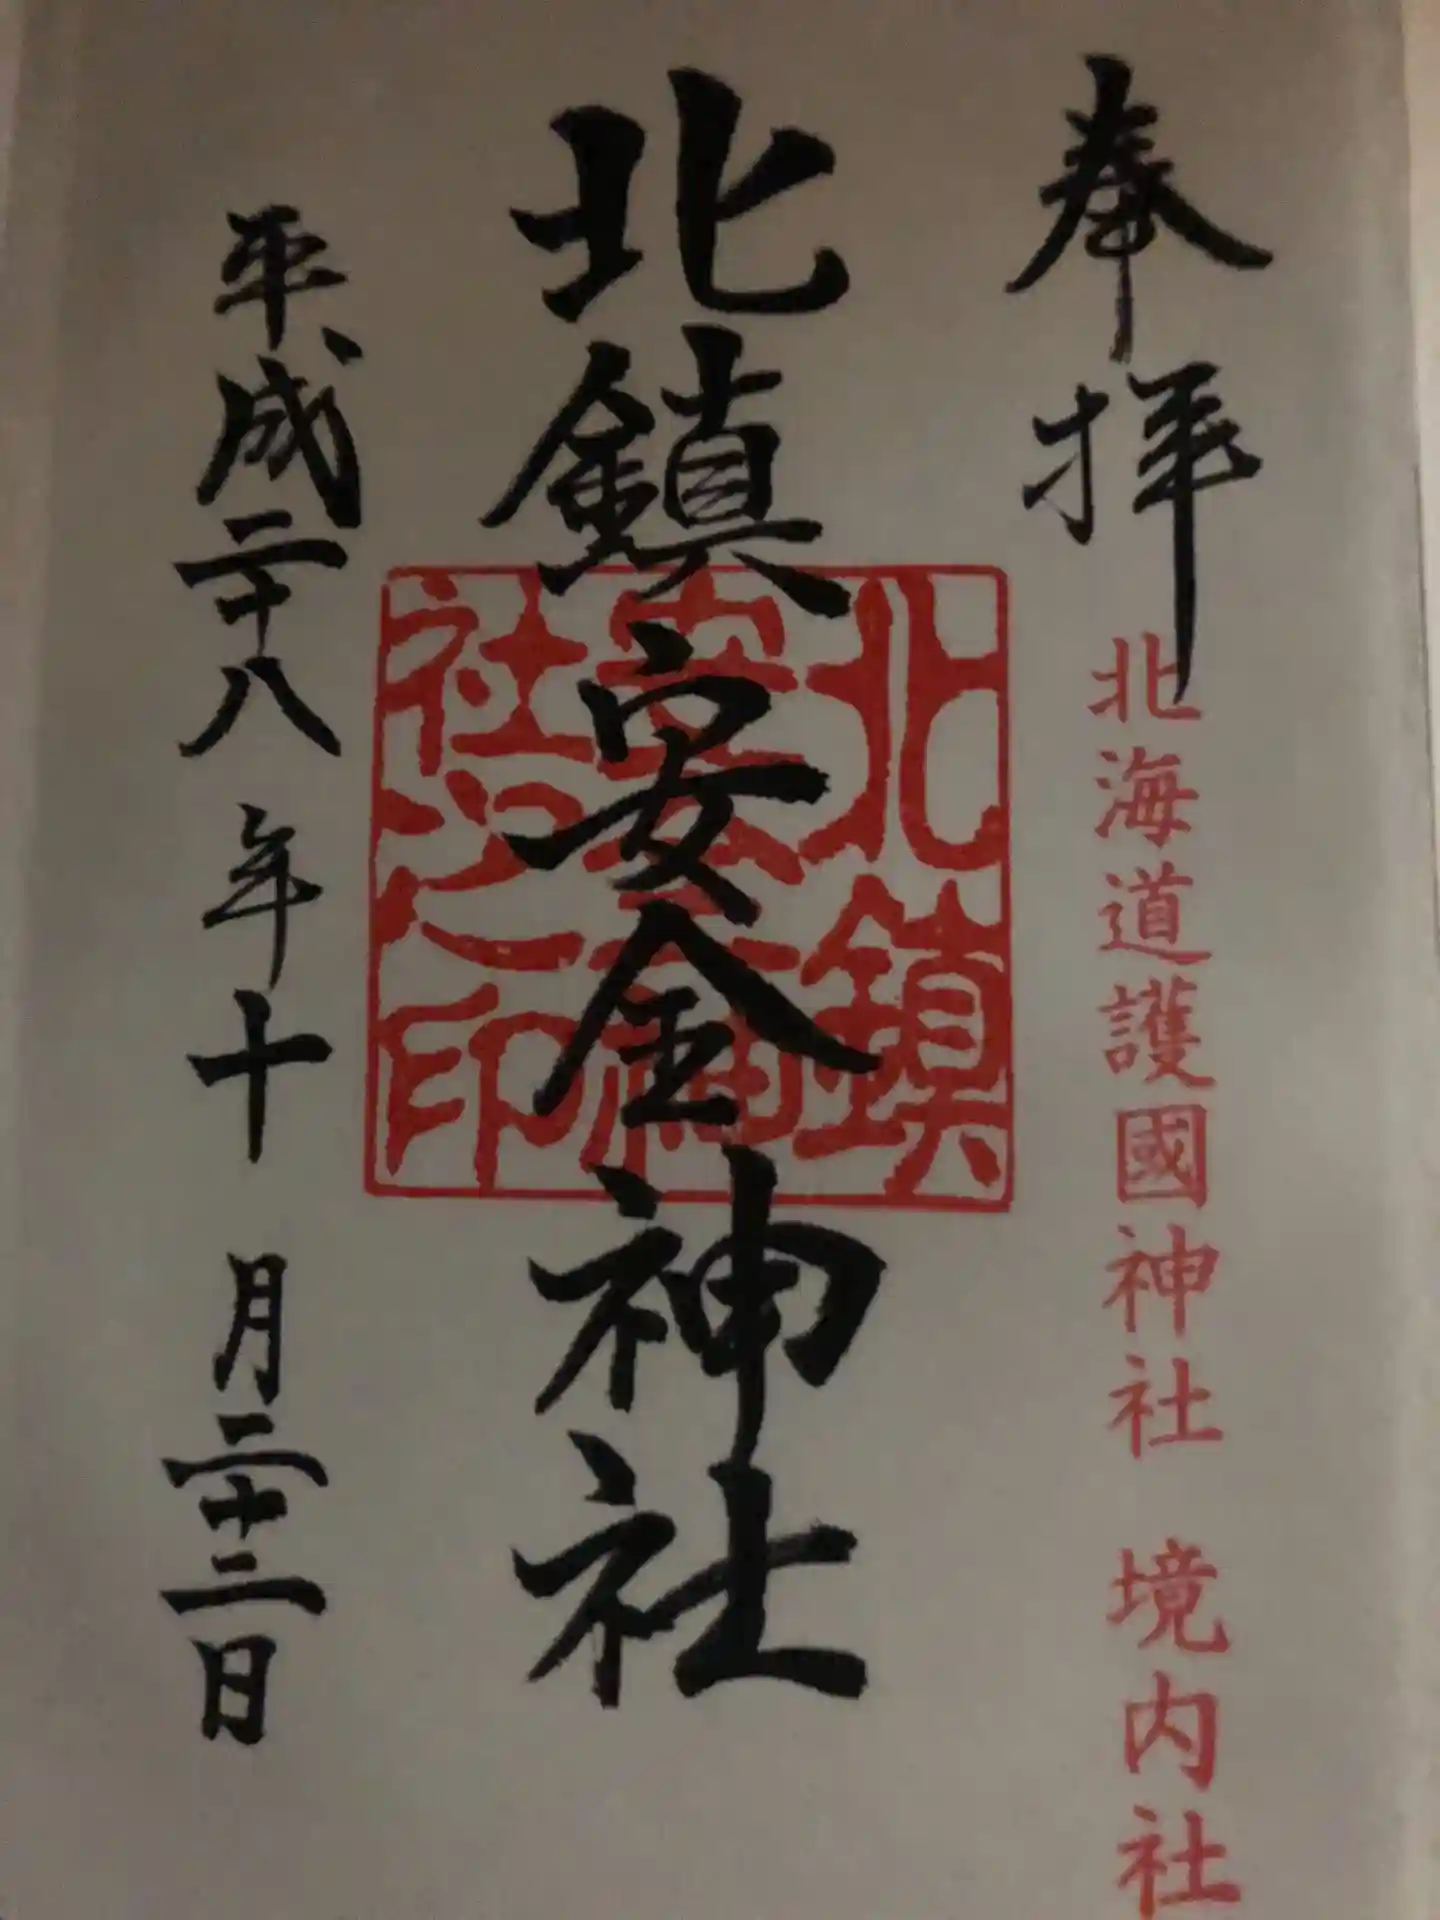 奉拝
北海道護國神社 境内社
北鎮安全神社
北鎮
安全神
社之印
平成二十八年十月二十二日